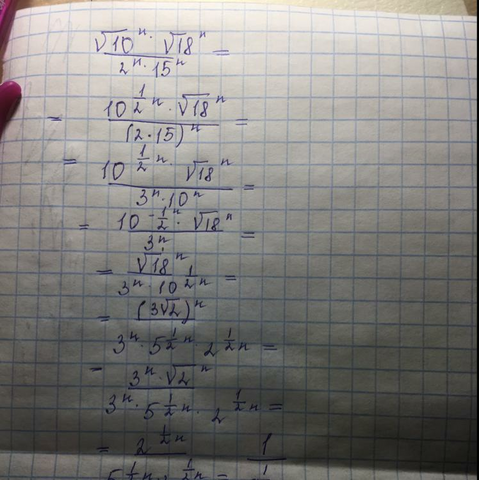 √10ⁿ · √18ⁿ / 2ⁿ · 15ⁿ =
= 10^(1/2 n) · √18ⁿ / (2·15)ⁿ =
= 10^(1/2 n) · √18ⁿ / 3ⁿ · 10ⁿ =
= 10^(-1/2 n) · √18ⁿ / 3ⁿ =
= √18ⁿ / 3ⁿ · 10^(1/2 n) =
= (3√2)ⁿ / 3ⁿ · 5^(1/2 n) · 2^(1/2 n) =
= 3ⁿ · √2ⁿ / 3ⁿ · 5^(1/2 n) · 2^(1/2 n) =
= 2^(1/2 n) / 5^(1/2 n) · 2^(1/2 n) = 1 /